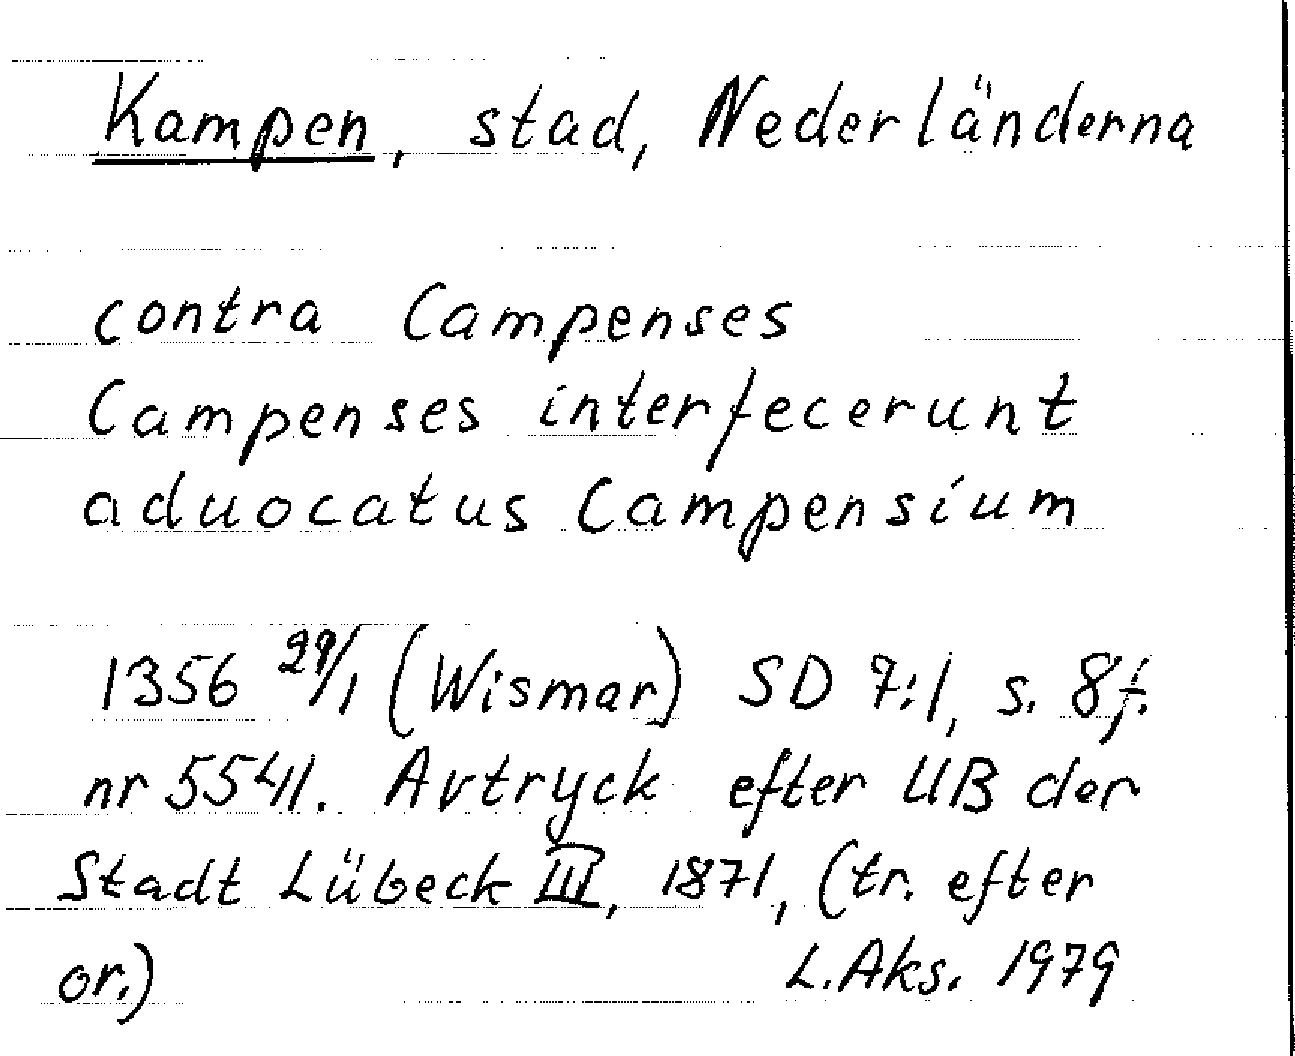 Kampen, stad, Nederländerna
contra Campenses
Campenses interfecerunt
aduocatus Campensium
1356 29/1 (Wismar) SD 7:1, s. 8f.
nr 5541. Avtryck efter UB der
Stadt Lübeck III, 1871, (tr. efter
or.) L.Aks. 1979